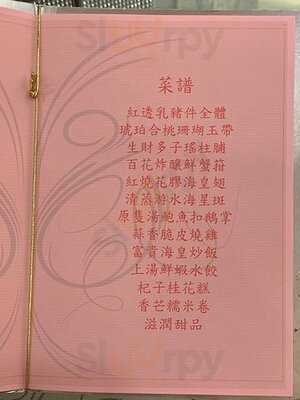 菜譜
紅透乳豬件全體
琥珀合桃珊瑚玉帶
生財多子瑤柱脯
百花炸釀鮮蟹箝
紅燒花膠海皇翅
清蒸游水海星斑
原隻湯鮑魚扣鵝掌
蒜香脆皮燒雞
富貴海皇炒飯
上湯鮮蝦水餃
杞子桂花糕
香芒糯米卷
滋潤甜品
Sluurpy
Sluurpy